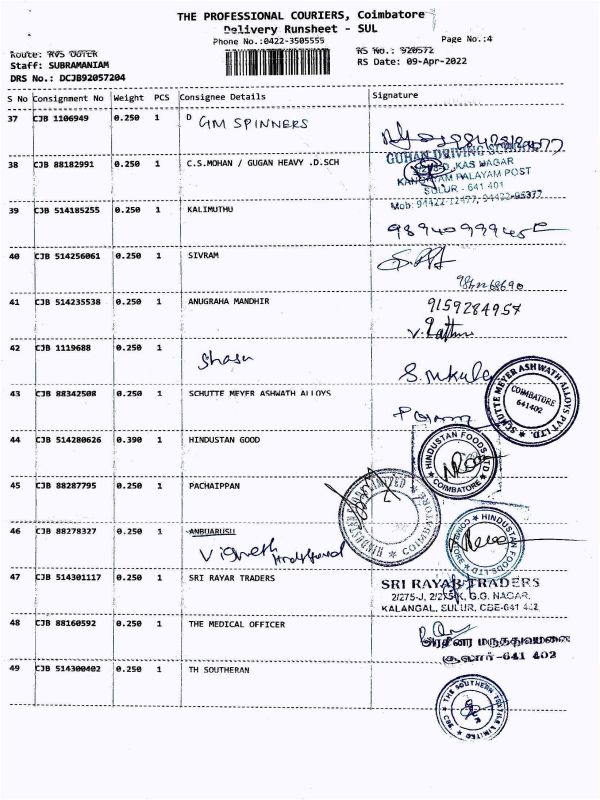 THE PROFESSIONAL COURIERS, Coimbatore
Delivery Runsheet - SUL
Phone No.:0422-3505555
Page No.:4
Route: RVS OUTER
RS No.: 920572
Staff: SUBRAMANIAM
RS Date: 09-Apr-2022
DRS No.: DCJB92057204
S No Consignment No Weight PCS Consignee Details Signature
37 CJB 1106949 0.250 1 D GM SPINNERS
38 CJB 88182991 0.250 1 C.S.MOHAN / GUGAN HEAVY .D.SCH
KAS NAGAR
PALAYAM POST
SULUR - 641 401
39 CJB 514185255 0.250 1 KALIMUTHU
40 CJB 514256061 0.250 1 SIVRAM
41 CJB 514235538 0.250 1 ANUGRAHA MANDHIR
9159284957
42 CJB 1119688 0.250 1
43 CJB 88342508 0.250 1 SCHUTTE MEYER ASHWATH ALLOYS
SCHUTTE MEYER ASHWATH ALLOYS PVT LTD.
COIMBATORE
641402
44 CJB 514280626 0.390 1 HINDUSTAN GOOD
HINDUSTAN FOODS LTD
COIMBATORE
45 CJB 88287795 0.250 1 PACHAIPPAN
46 CJB 88278327 0.250 1 ANBUARUSU
Vignesh
HINDUSTAN FOODS LTD
47 CJB 514301117 0.250 1 SRI RAYAR TRADERS
SRI RAYAR TRADERS
2/275-J, 2/275-K, G.G. NAGAR,
KALANGAL, SULUR, CBE-641 402.
48 CJB 88160592 0.250 1 THE MEDICAL OFFICER
சூலூர்-641 402
49 CJB 514300402 0.250 1 TH SOUTHERAN
THE SOUTHERN TEXTILE LIMITED
CBE